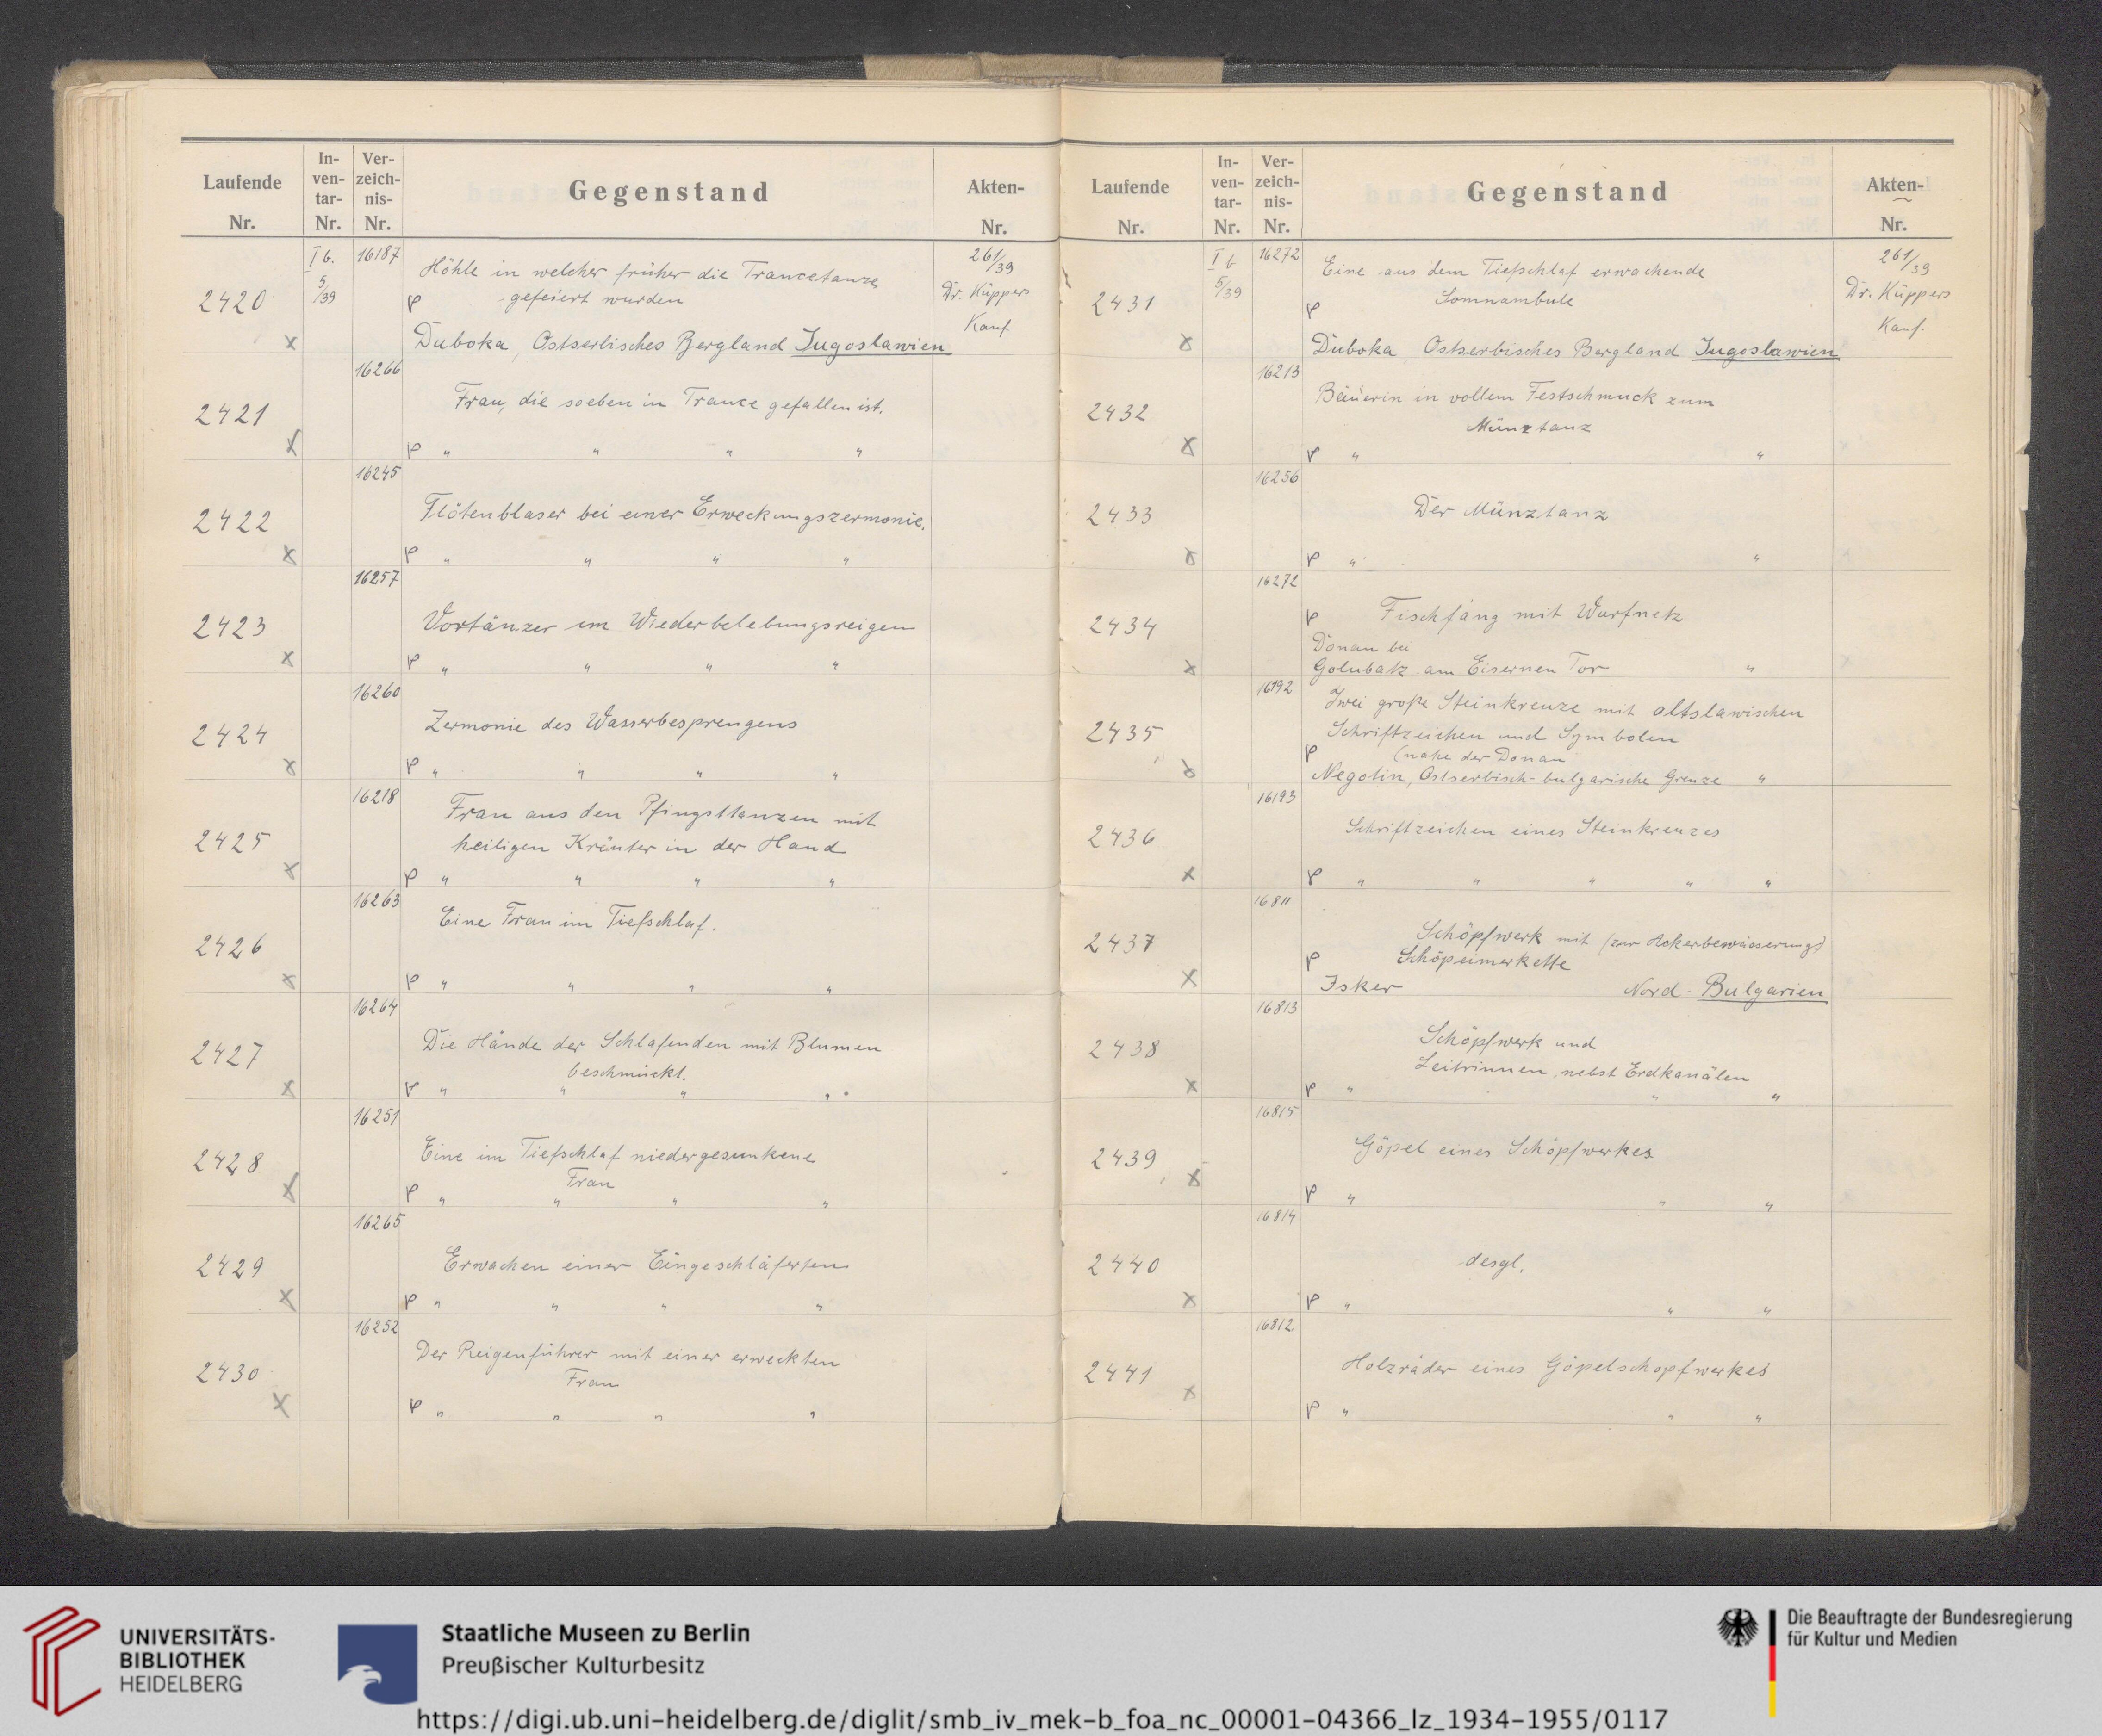 Laufende Nr. In-ven-tar-Nr. Ver-zeich-nis-Nr. Gegenstand Akten-Nr.
I b. 5/39 16187 261/39
2420 Höhle in welcher früher die Trancetänze
P gefeiert wurden Dr. Küppers
Kauf
x Duboka, Ostserbisches Bergland Jugoslawien
16266
2421 Frau, die soeben in Trance gefallen ist.
x P " " " "
16245
2422 Flötenbläser bei einer Erweckungszermonie.
x P " " " "
16257
2423 Vortänzer im Wiederbelebungsreigen
x P " " " "
16260
2424 Zermonie des Wasserbesprengens
x P " " " "
16218
2425 Frau aus den Pfingsttänzen mit
heiligen Kräuter in der Hand
x P " " " "
16263
2426 Eine Frau im Tiefschlaf.
x P " " " "
16264
2427 Die Hände der Schlafenden mit Blumen
beschmückt.
x P " " " "
16251
2428 Eine im Tiefschlaf niedergesunkene
Frau
x P " " " "
16265
2429 Erwachen einer Eingeschläferten
x P " " " "
16252
2430 Der Reigenführer mit einer erweckten
Frau
x P " " " "
Laufende Nr. In-ven-tar-Nr. Ver-zeich-nis-Nr. Gegenstand Akten-Nr.
I b 5/39 16272 261/39
2431 Eine aus dem Tiefschlaf erwachende
P Somnambule Dr. Küppers
Kauf.
x Duboka Ostserbisches Bergland Jugoslawien
16213
2432 Bäuerin in vollem Festschmuck zum
Münztanz
x P " "
16256
2433 Der Münztanz
x P " "
16272
2434 P Fischfang mit Wurfnetz
Donau bei
x Golubatz am Eisernen Tor "
16192
2435 Zwei große Steinkreuze mit altslawischen
Schriftzeichen und Symbolen
P (nahe der Donau
x Negotin, Ostserbisch-bulgarische Grenze "
16193
2436 Schriftzeichen eines Steinkreuzes
x P " " " " "
16811
2437 Schöpfwerk mit (zur Ackerbewässerung)
P Schöpeimerkette
x Isker Nord-Bulgarien
16813
2438 Schöpfwerk und
Leitrinnen, nebst Erdkanälen
x P " " "
16815
2439 Göpel eines Schöpfwerkes
x P " " "
16814
2440 desgl.
x P " " "
16812
2441 Holzräder eines Göpelschöpfwerkes
x P " " "
UNIVERSITÄTS-
BIBLIOTHEK
HEIDELBERG
Staatliche Museen zu Berlin
Preußischer Kulturbesitz
Die Beauftragte der Bundesregierung
für Kultur und Medien
https://digi.ub.uni-heidelberg.de/diglit/smb_iv_mek-b_foa_nc_00001-04366_lz_1934-1955/0117